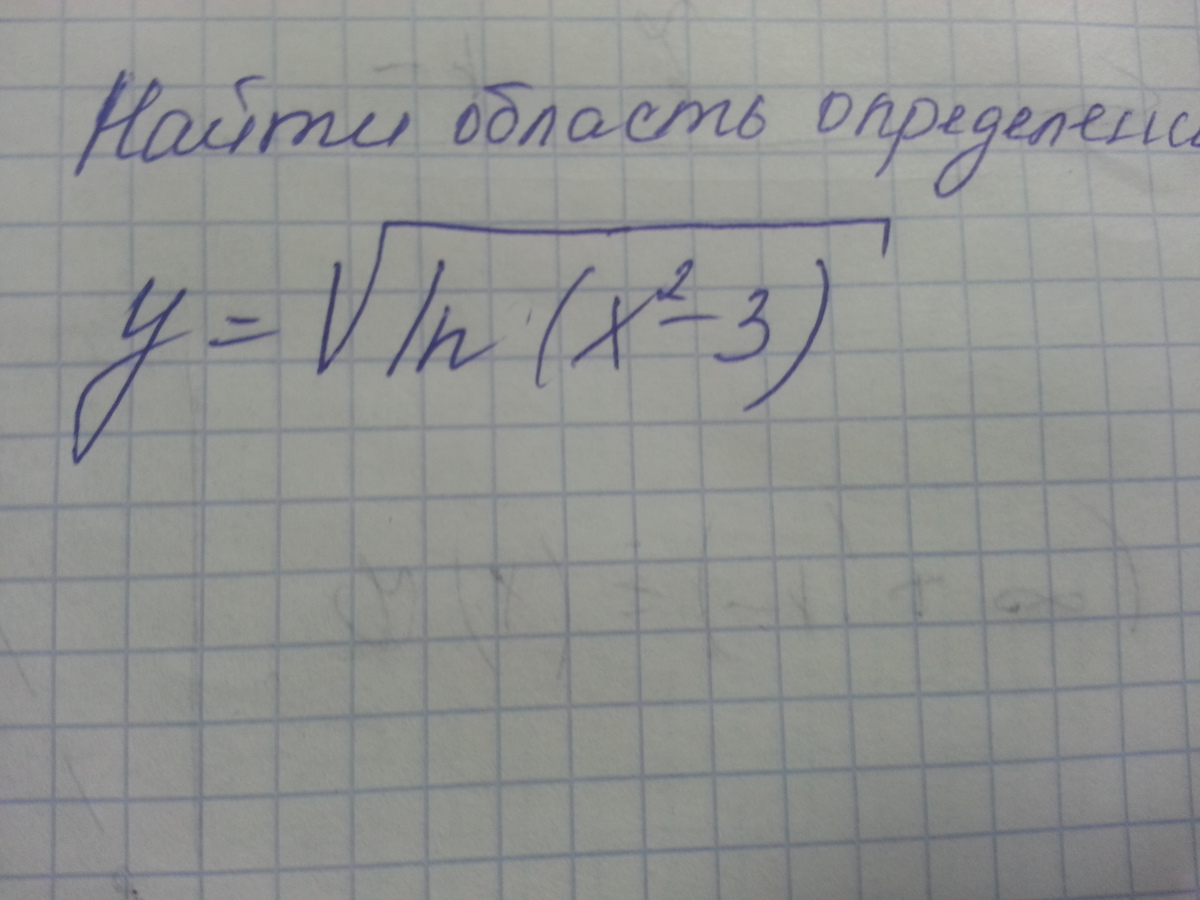 Найти область определени
y = √ln (x² - 3)